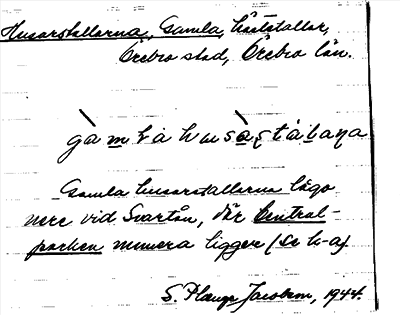 Husarstallarna, Gamla, häststallar,
Örebro stad, Örebro län.
Gamla husarstallarna lågo
nere vid Svartån, där Central-
parken numera ligger (Se k-a)
S. Plange Jacobson, 1944.